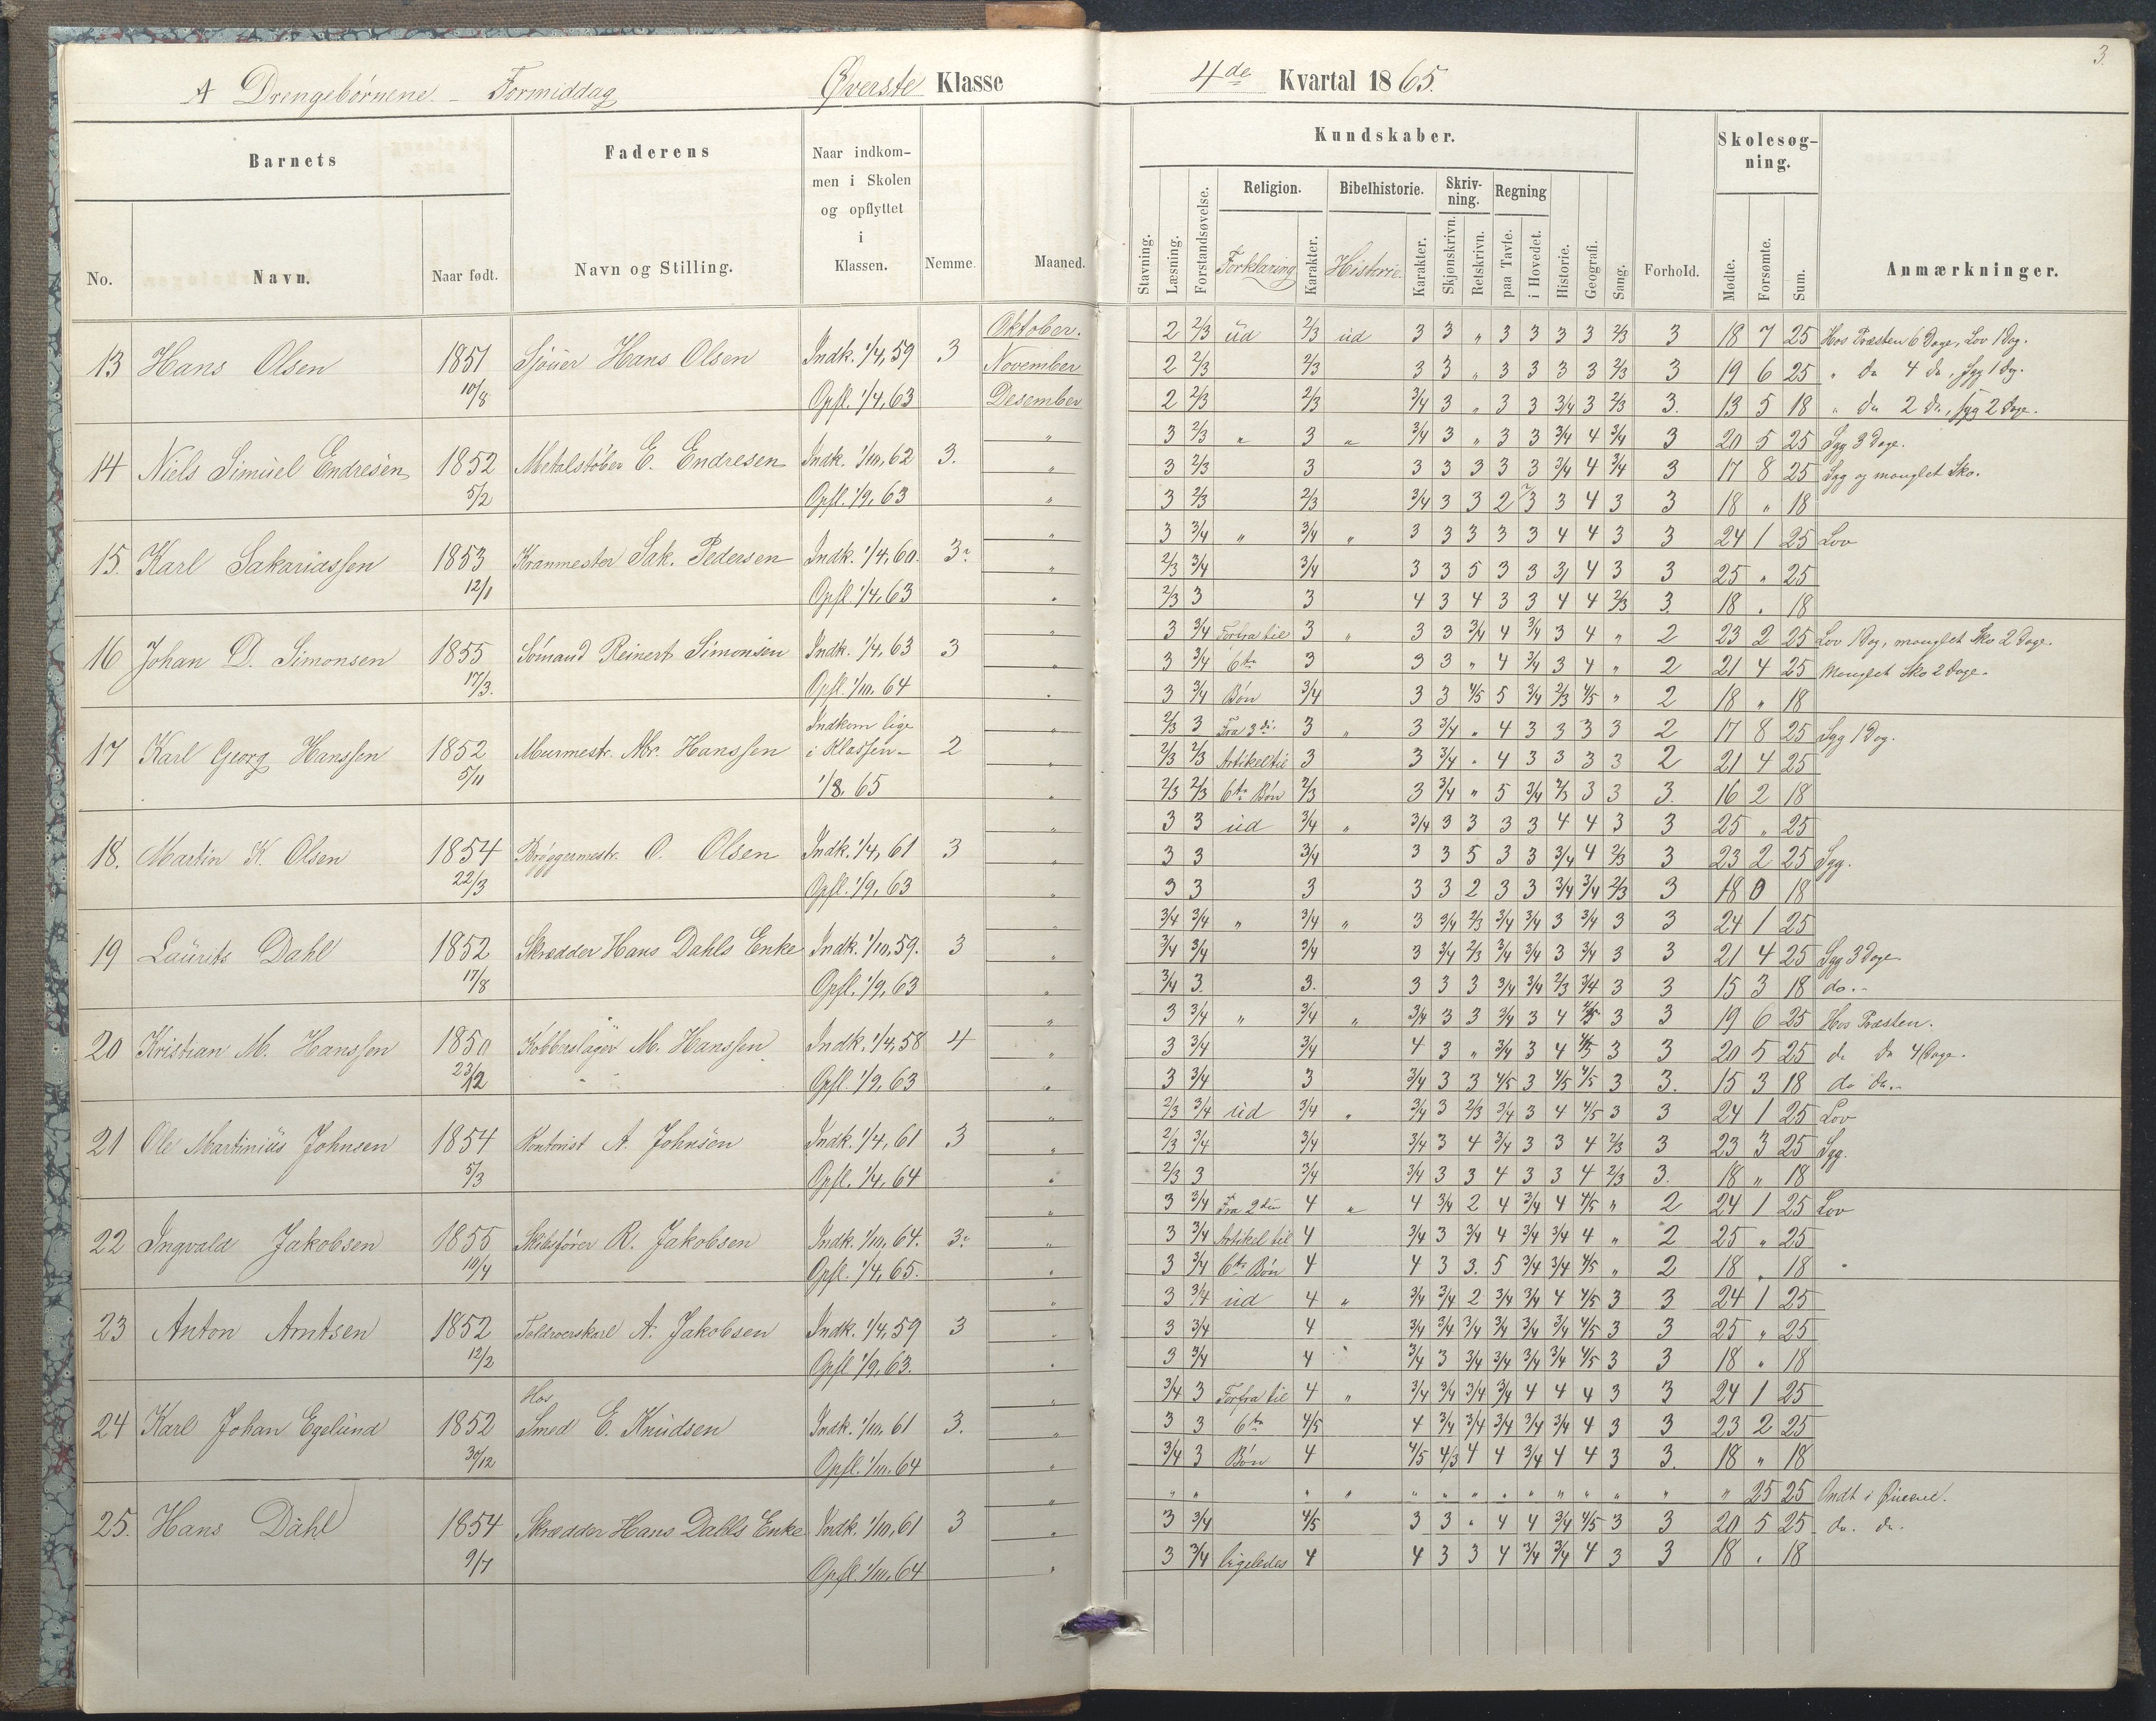 3.
A Drengebörnene - Formiddag Øverste Klasse 4de Kvartal 1865.
Barnets Faderens Naar indkom- Kundskaber. Skolesøg-
men i Skolen ning.
og opflyttet Religion. Bibelhistorie. Skriv- Regning
i ning.
No. Navn. Naar født. Navn og Stilling. Klassen. Nemme. Maaned. Stavning. Læsning. Forstandsøvelse. Forklaring Karakter. Historie Karakter. Skjønskrivn. Retskrivn. paa Tavle. i Hovedet. Historie. Geografi. Sang. Forhold. Mødte. Forsømte. Sum. Anmærkninger.
Oktober. 2 2/3 ud 2/3 ud 3 3 " 3 3 3 3 2/3 3 18 7 25 Hos Præsten 6 Dage, Lov 1 Dag.
13 Hans Olsen 1851 Sjouer Hans Olsen Indk. 1/4, 59 3 November 2 2/3 2/3 3 3 " 3 3 3 3 2/3 3 19 6 25 " do 4 do, syg 1 Dg.
10/8 Opfl. 1/4, 63 Desember 2 2/3 2/3 3/4 3 " 3 3 3/4 3 2/3 3. 13 5 18 " do 2 do, syg 2 Dage.
" 3 2/3 " 3 " 3/4 3 " 3 3 3/4 4 3/4 3 20 5 25 Syg 3 Dage.
14 Niels Simuel Endresen 1852 Metalstøber E. Endresen Indk. 1/10, 62 3. " 3 2/3 3 3 3 3 3 3 3/4 4 3/4 3 17 8 25 Syg og manglet Sko.
5/2 Opfl. 1/9, 63 " 3 2/3 2/3 3/4 3 3 2 3 3 4 3 3 18 " 18
" 3 3/4 " 3/4 " 3 3 3 3 3 4 4 3 3 24 1 25 Lov
15. Karl Sakariassen 1853 Kranmester Sak. Pedersen Indk. 1/4, 60. 3 " 2/3 3/4 3/4 3 3 5 3 3 3/ 4 3 3 25 " 25
12/1 Opfl. 1/4, 63 " 2/3 3 3 4 3 4 3 3 4 4 2/3 3. 18 " 18
" 3 3/4 Forfra til 3 " 3 3 3/4 4 3/4 3 4 " 2 23 2 25 Lov 1 Dag, manglet Sko 2 Dage.
16 Johan D. Simonsen 1855 Sømand Reinert Simonsen Indk. 1/4, 63 3 " 3 3/4 6te 3 3 3 " 4 3/4 3 4 " 2 21 4 25 Manglet Sko 2 Dage.
17/3. Opfl. 1/10, 64 " 3 3/4 Bön 3/4 3 3 4/5 5 3/4 2/3 4/5 " 2 18 " 18
Indkom lige " 2/3 3 Fra 3di 3 " 3 3/4 " 4 3 3 3 3 2 17 8 25 Syg 1 Dag.
17 Karl Georg Hanssen 1852 Murmestr. Hanssen i Klassen- 2 " 2/3 2/3 Artikel til 3 3 3/4 " 4 3 3 3 3 2 21 4 25
5/11 1/8, 65 " 2/3 2/3 6te Bön 2/3 3 3/4 " 5 3/4 2/3 3 3 3. 16 2 18
" 3 3 ud 3/4 " 3/4 3 3 3 3 4 4 3 3 25 " 25
18. Martin K. Olsen 1854 Bryggermestr. O. Olsen Indk. 1/4, 61 3 " 3 3 3/4 3 3 5 3 3 3/4 4 2/3 3 23 2 25 Syg.
22/3 Opfl. 1/9, 63 " 3 3 3 3 3 2 3 3 3/4 3/4 2/3 3 18 0 18
" 3/4 3/4 " 3/4 " 3 3/4 2/3 3/4 3/4 3 3/4 3 3 24 1 25
19 Laurits Dahl 1852 Skrædder Hans Dahls Enke Indk. 1/10, 59. 3 " 3/4 3/4 3/4 3 3/4 2/3 3/4 3/4 3 3/4 3 3 21 4 25 Syg 3 Dage
17/8 Opfl. 1/9, 63 " 3/4 3 3. 3 3 3 3/4 3/4 2/3 3/4 3 3 15 3 18 do.-
" 3 3/4 " 3/4 " 3/4 3 3 3/4 3 4 4/5 3 3 19 6 25 Hos Præsten.
20 Kristian M. Hanssen 1850 Kobberslager M. Hanssen Indk. 1/4, 58 4 " 3 3/4 3/4 4 3 " 3/4 3 4 4/5 3 3 20 5 25 do do 4 Dage.
23/12 Opfl. 1/9, 63 " 3 3/4 3 3/4 3 3 4/5 3 4/5 4/5 3 3. 15 3 18 do do.-
" 2/3 3/4 ud 3/4 " 3/4 3 2/3 3/4 3 4 4/5 3 3 24 1 25 Lov
21 Ole Martinius Johnsen 1854 Kontorist A. Johnsen Indk. 1/4, 61 3 " 2/3 3/4 3/4 3/4 3 4 3/4 3 3 4 2/3 3 23 3 25 Syg.
5/3 Opfl. 1/4, 64 " 2/3 3 3/4 3/4 3 3 4 3 3 4 2/3 3. 18 " 18
" 3 3/4 Fra 2den 4 " 4 3/4 2 4 3/4 4 4/5 " 2 24 1 25 Lov
22 Ingvald Jakobsen 1855 Skibsfører R. Jakobsen Indk. 1/10, 64. 3 " 3 3/4 Artikel til 4 3/4 3 3/4 4 3/4 3/4 4 " 2 25 " 25
10/4 Opfl. 1/4, 65. " 3 3/4 6te Bön 4 4 3 3. 5 3/4 3/4 4/5 " 2 18 " 18
" 3 3/4 ud 4 " 3/4 3/4 2 3/4 3/4 4 4/5 3 3 24 1 25
23 Anton Arntsen 1852 Toldroerskarl A. Jakobsen Indk. 1/4, 59 3 " 3 3/4 4 3/4 3/4 3/4 3/4 3/4 3/4 4/5 3 3 25 " 25
12/2 Opfl 1/9, 63. " 3 3/4 4 3/4 3 3/4 3/4 3/4 3/4 4/5 3 3 18 " 18
Hos " 3/4 3 Forfra til 4 " 3/4 3/4 3/4 3/4 4 4 4 3 3 24 1 25
24 Karl Johan Egelund 1852 Smed E. Knudsen Indk. 1/10, 61 3. " 3 3 6te 4/5 4 3/4 3/4 3/4 3/4 3/4 4 3 3 23 2 25
30/12 Opfl. 1/10, 64 " 3/4 3 Bön 4 4/5 4/3 4 4 3/4 4 4 3 3. 18 " 18
" " " " " " " " " " " " " " " " 25 25 Ondt i Öinene.
25. Hans Dahl 1854 Skrædder Hans Dahls Enke Indk. 1/10, 61 3 " 3 3/4 4/5 3 3 " 4 4 3/4 4/5 3 3 20 5 25 do. do.
9/7 Opfl. 1/10, 64 " 3 3/4 ligeledes 4 4 3 3 4 3/4 3/4 4 3 3 18 " 18